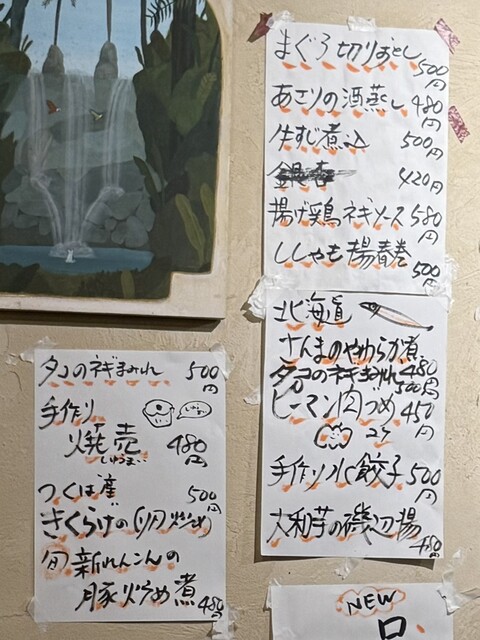 まぐろ切りおとし 500円
あさりの酒蒸し 480円
牛すじ煮込 500円
銀杏 420円
揚げ鶏ネギソース 580円
ししゃも揚春巻 500円
北海道
さんまのやわらか煮 480
タコのネギまみれ 500円
ピーマン肉つめ 450円
2ケ
手作り水餃子 500円
大和芋の磯辺揚 480円
タコのネギまみれ 500円
手作り
焼売 480円
しゅうまい
つくば産 500円
きくらげの卵炒め
旬新れんこんの
豚炒め煮 480円
NEW